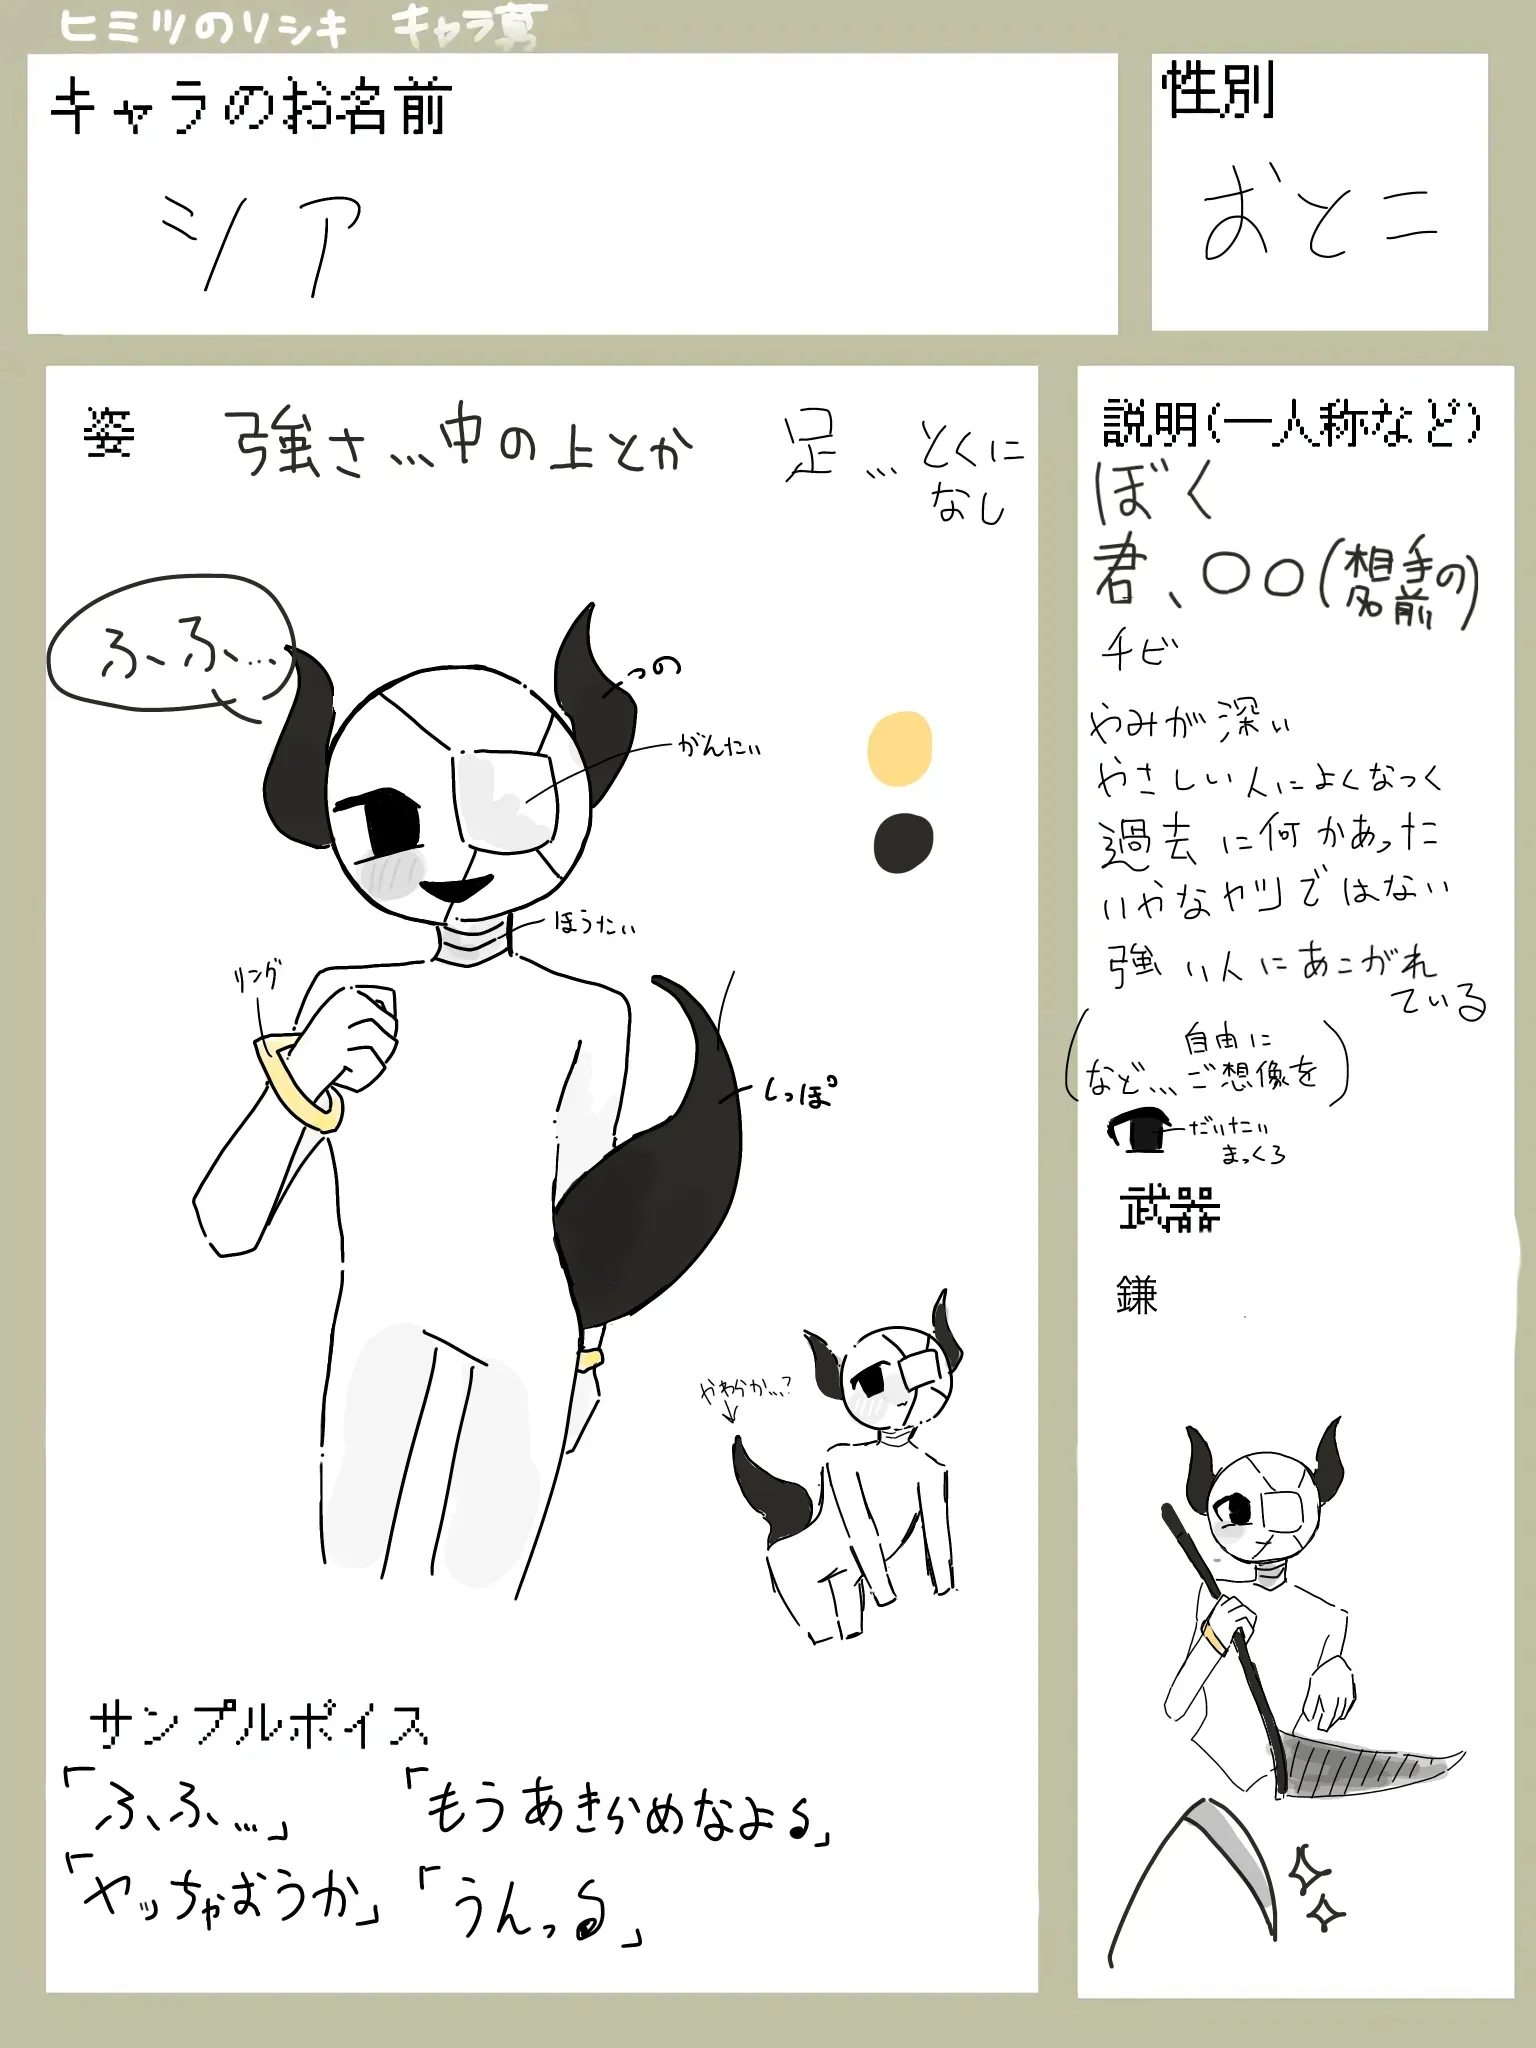 ヒミツのソシキ キャラ募
キャラのお名前
シア
性別
おとこ
姿
強さ...中の上とか
足...とくに
なし
ふ、ふ、...
つの
がんたい
ほうたい
リング
しっぽ
やわらか...?
サンプルボイス
「ふ、ふ、...」
「もうあきらめなよ♪」
「ヤッちゃおうか」
「うんっ♪」
説明(一人称など)
ぼく
君、〇〇(相手の名前)
チビ
やみが深い
やさしい人によくなつく
過去に何かあった
いやなヤツではない
強い人にあこがれ
ている
(など...自由に
ご想像を)
だいたい
まっくろ
武器
鎌